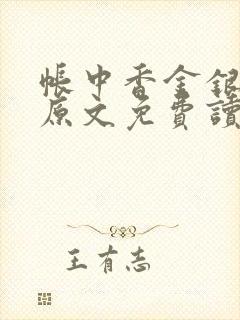 帳中香金銀
原文免費讀
王有志